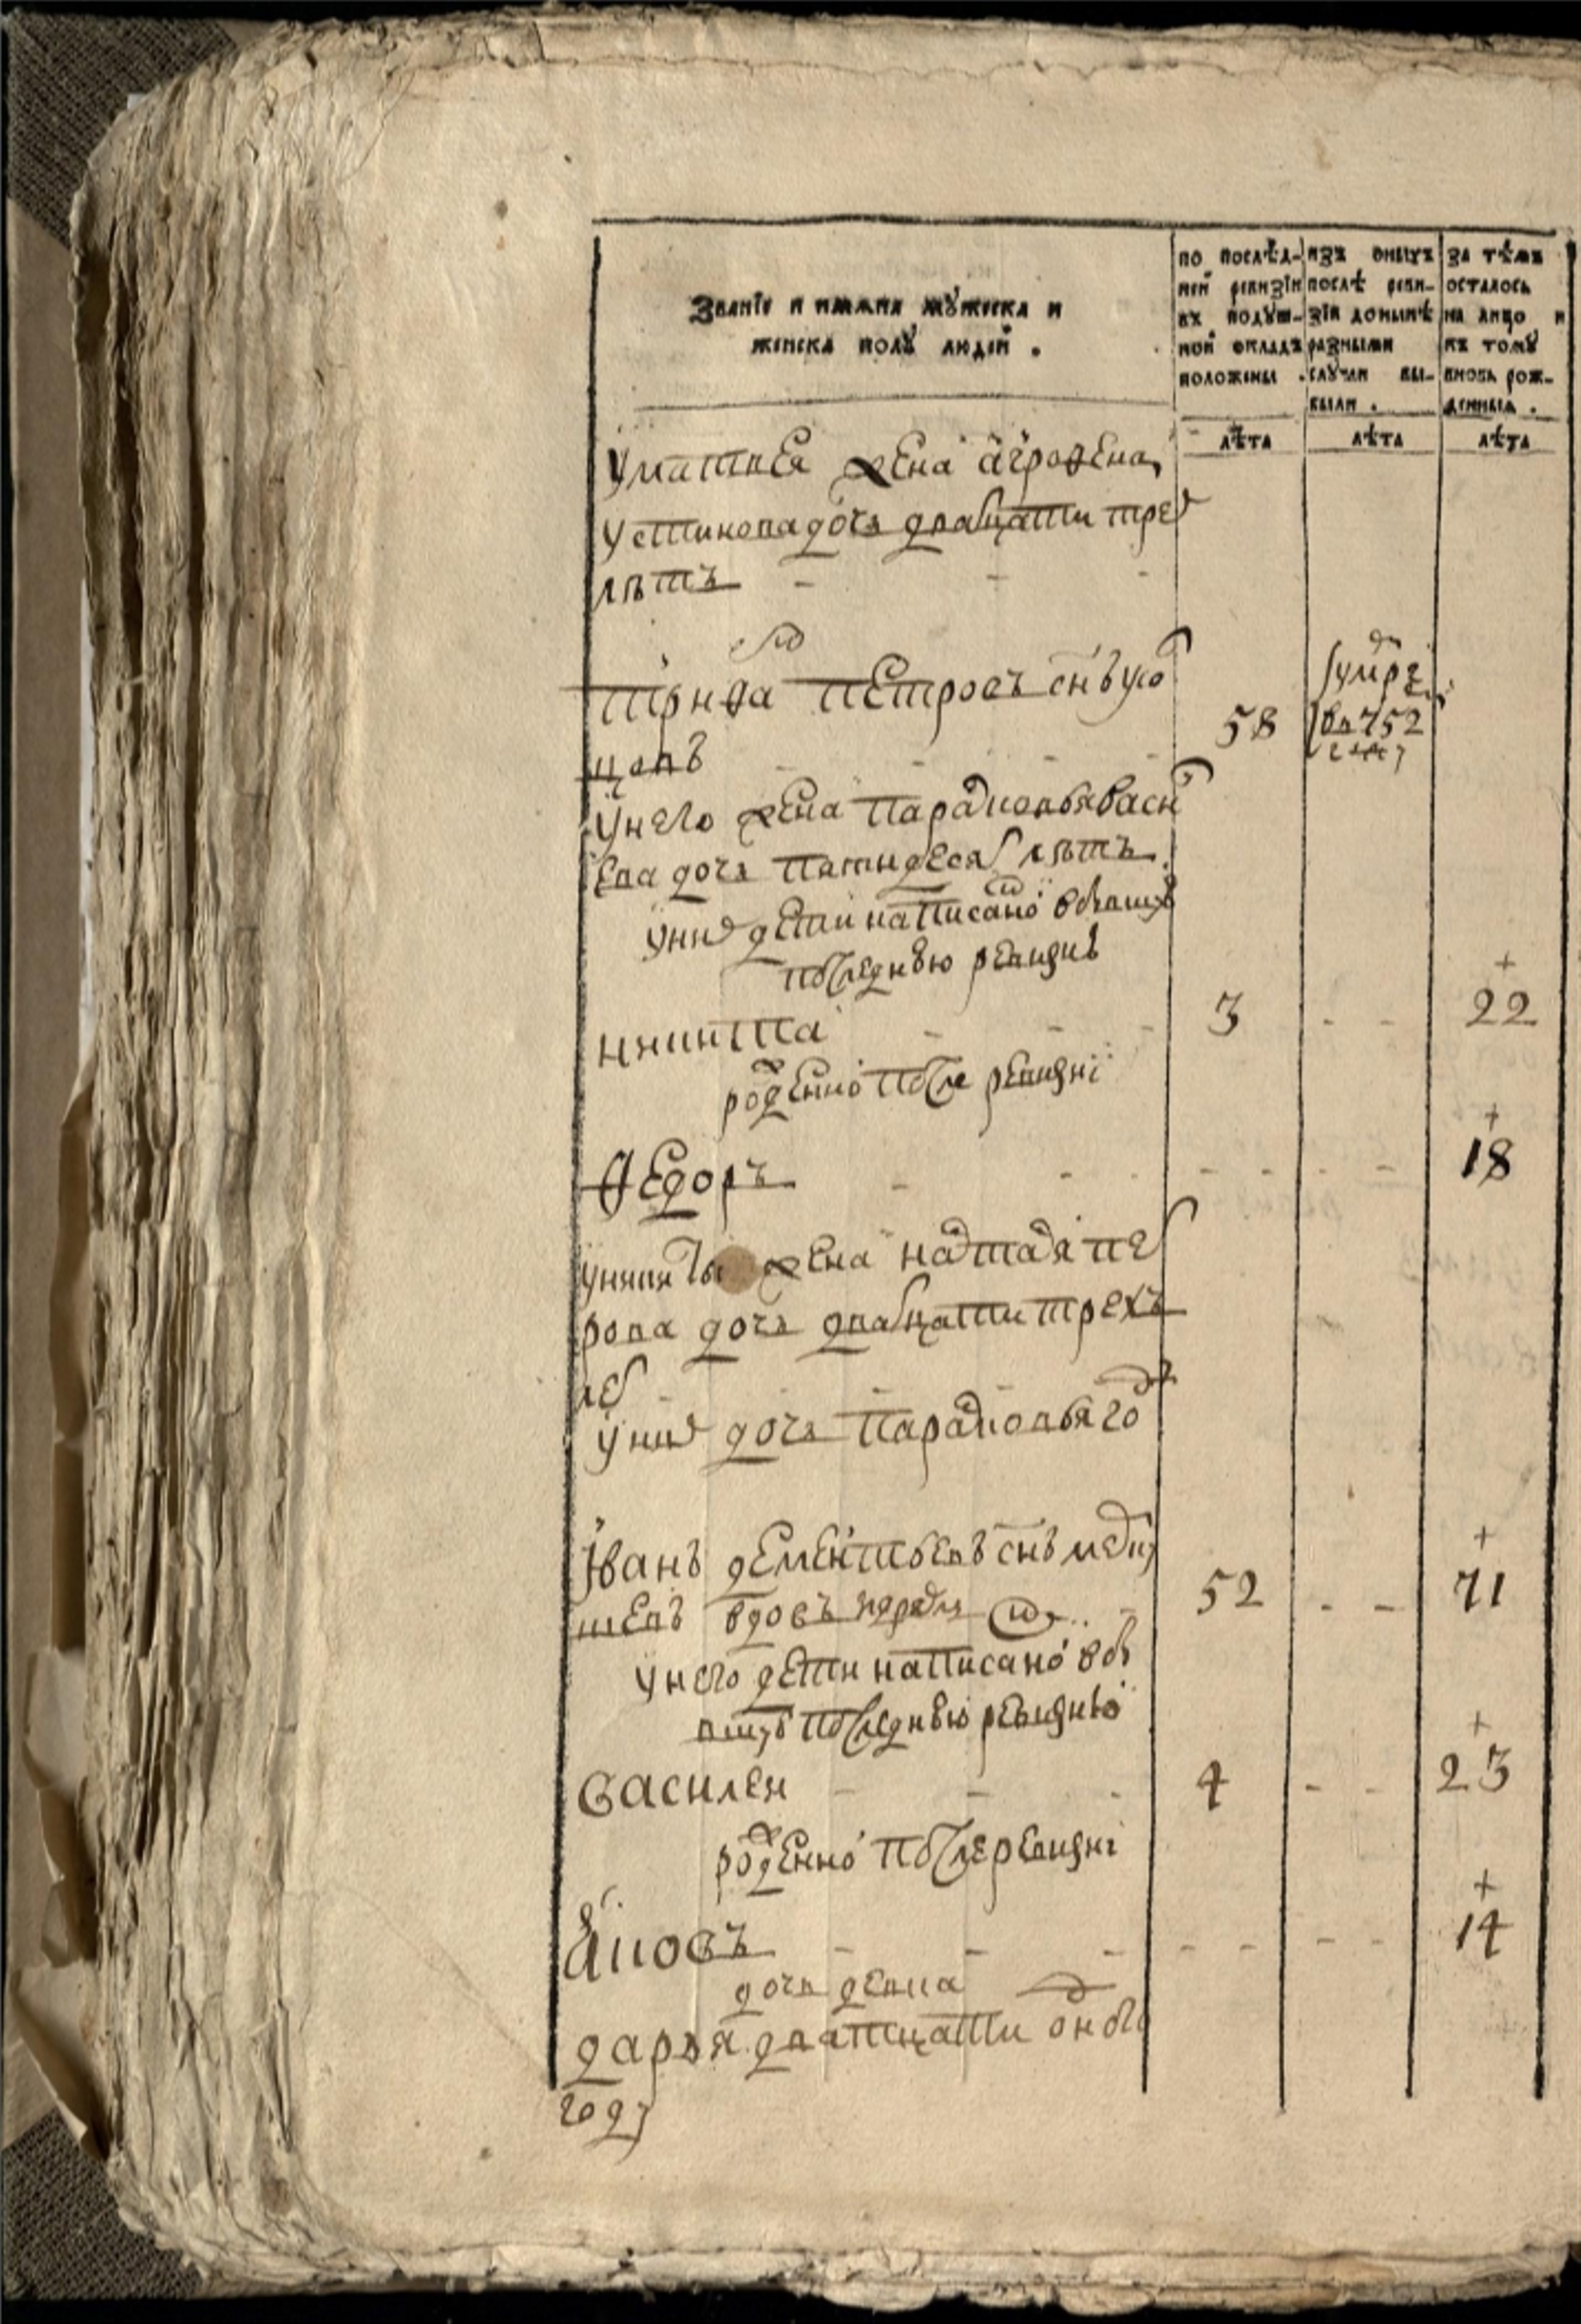 Званїе и имѧна мꙋжеска и
женска полꙋ людей .
по послѣд-
ней ревизїи
въ подꙋш-
ной окладъ
положены .
изъ оныхъ
послѣ реви-
зїи донынѣ
разными
слꙋчаи вы-
были .
за тѣмъ
осталось
на лицо и
къ томꙋ
вновь рож-
денныѧ .
лѣта лѣта лѣта
у матвея жена агрофена
устинова дочь дватцати трех
лѣтъ
трифа петровъ снъ 58 умре
в 752
году
у него жена парасковья васи
ева дочь пятидесят лѣтъ
у них дети написаной в бывшую
последнюю ревизию
никита 3 22
рожденной после ревизиї
Федоръ 18
у никиты жена настася пет
рова дочь дватцати трехъ
лет
у них дочь парасковья году
Iванъ дементьевъ снъ
вдовъ 52 71
у него дети написаной в бы
вшую последнюю ревизию
василей 4 23
рожденной после ревизиї
яковъ 14
дочь девка
дарья дватцати одного
году